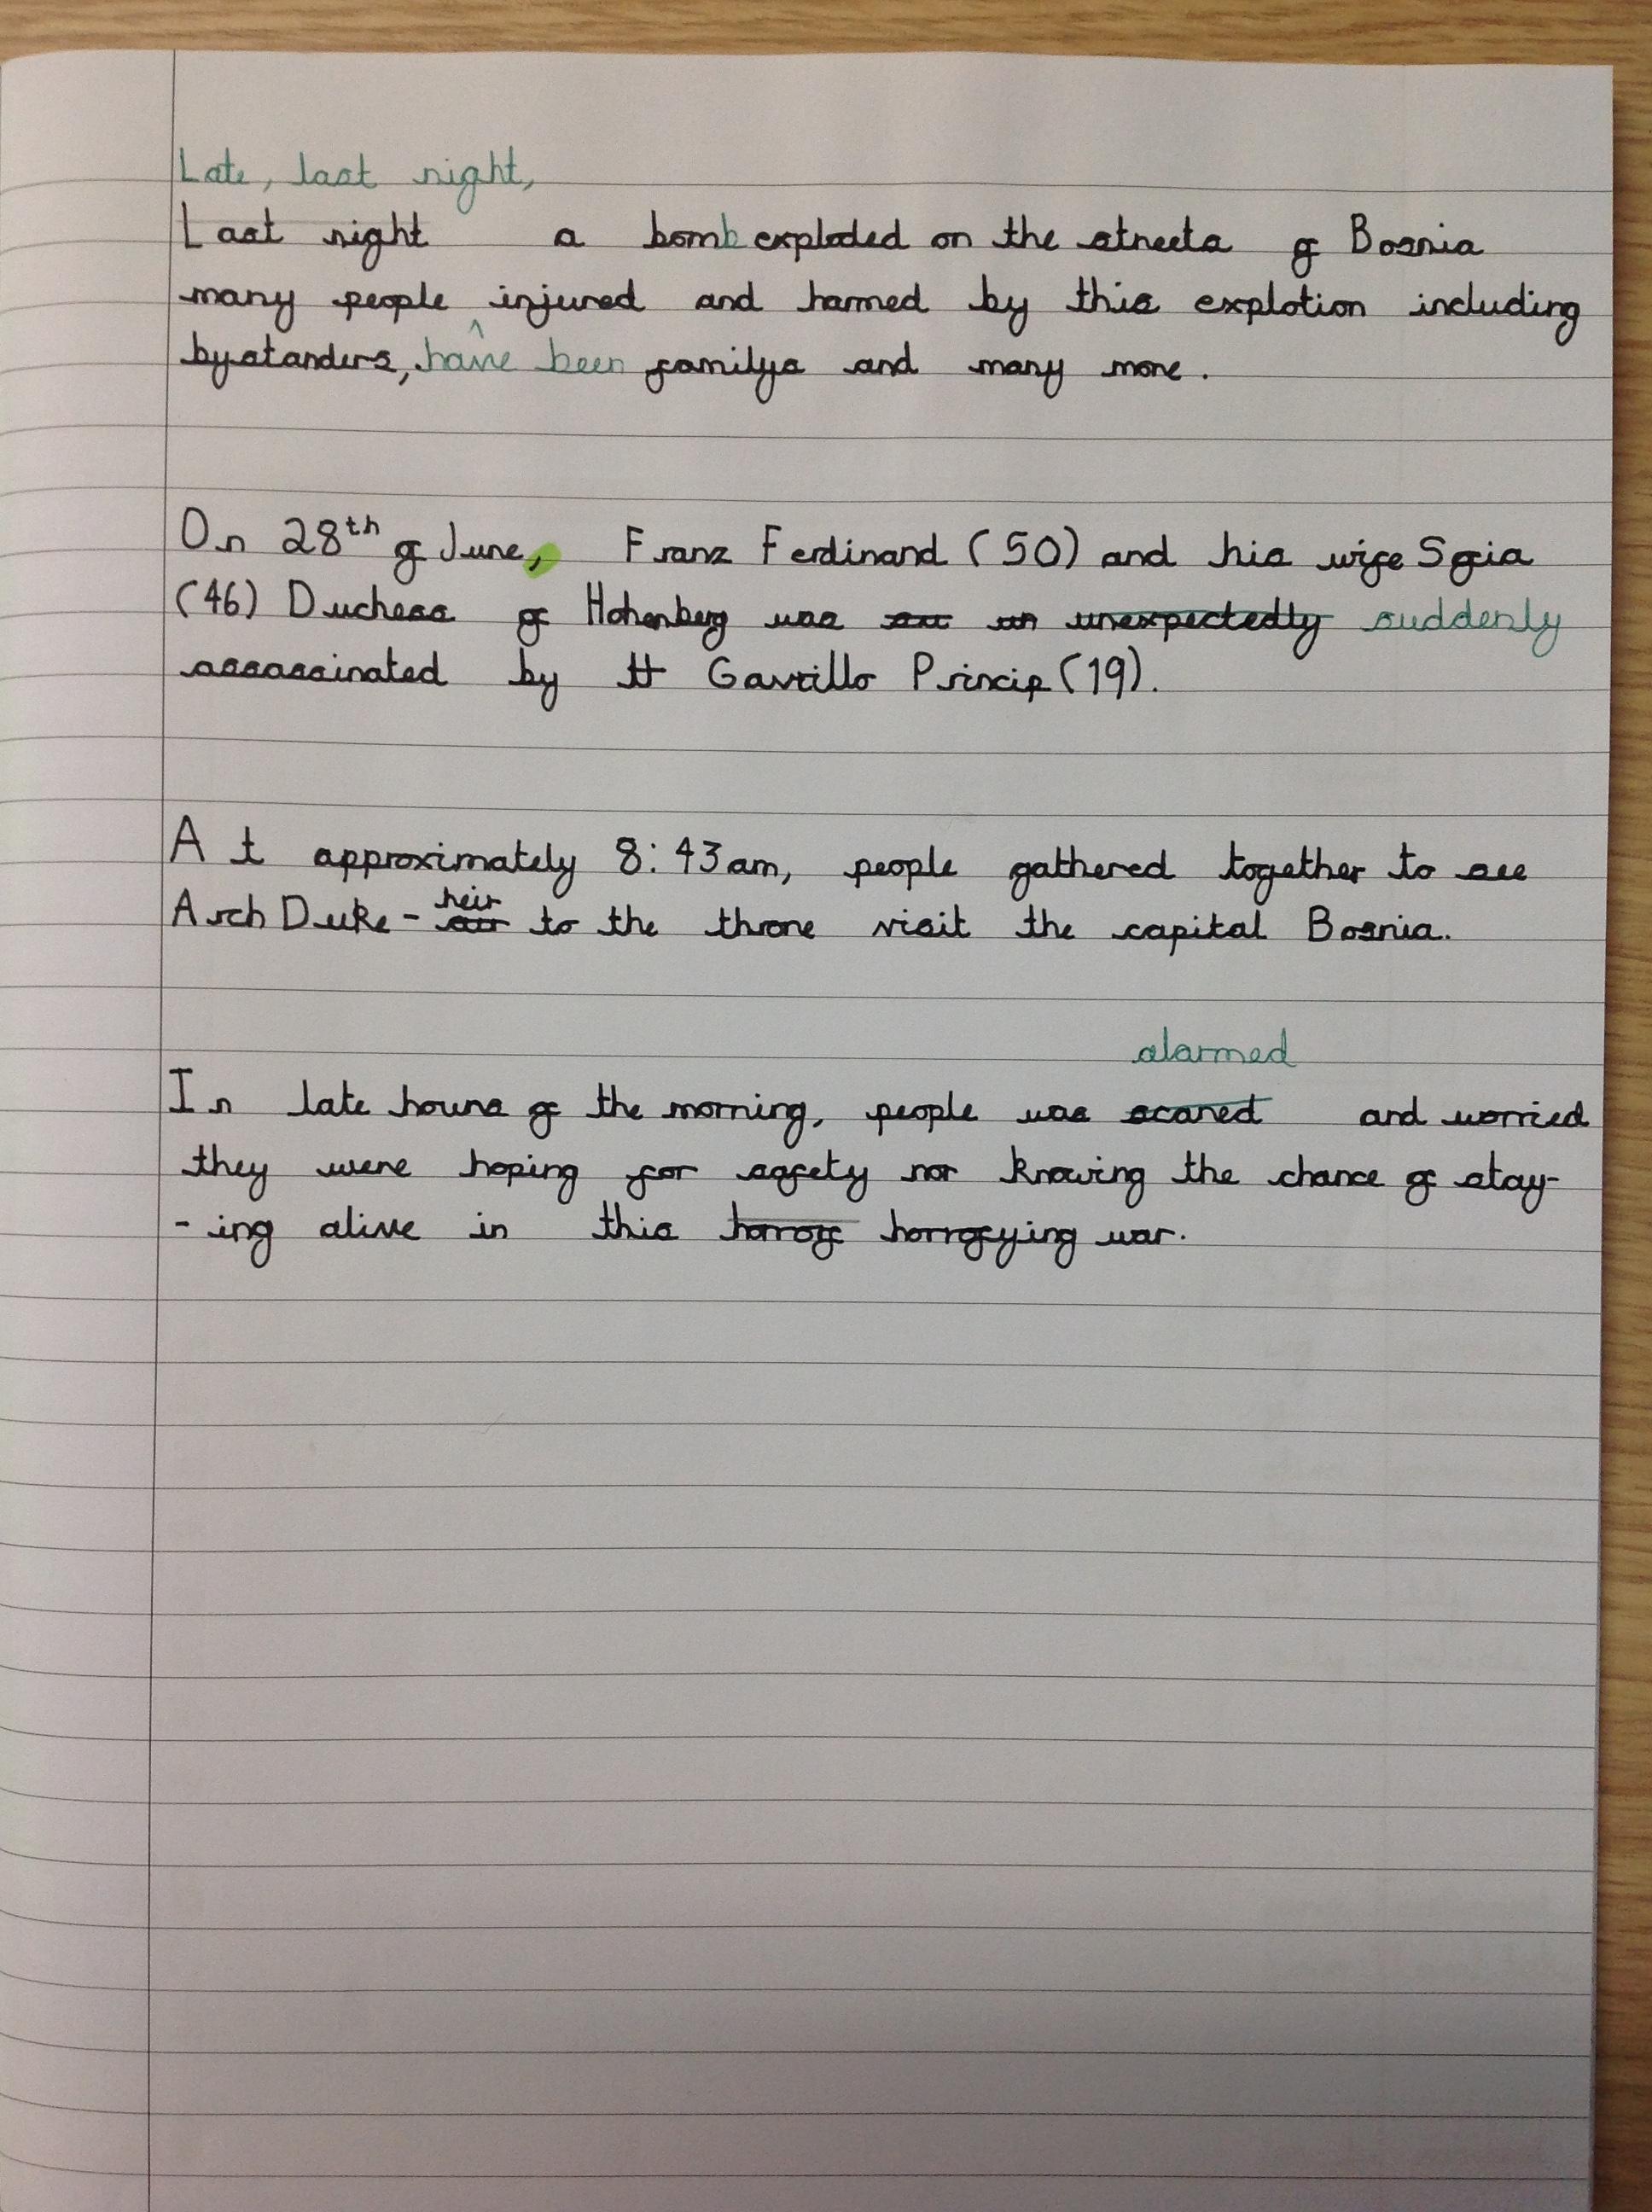 Late, last night,
Last night a bomb exploded on the streets of Bosnia
many people injured and harmed by this explotion including
bystanders, have been familys and many more.
On 28th of June, Franz Ferdinand (50) and his wife Sofia
(46) Duchess of Hohenberg was unexpectedly suddenly
assassinated by Gavrillo Princip (19).
At approximately 8:43am, people gathered together to see
heir
Arch Duke - air to the throne visit the capital Bosnia.
alarmed
In late hours of the morning, people was scared and worried
they were hoping for safety nor knowing the chance of stay-
-ing alive in this horrof horrofying war.